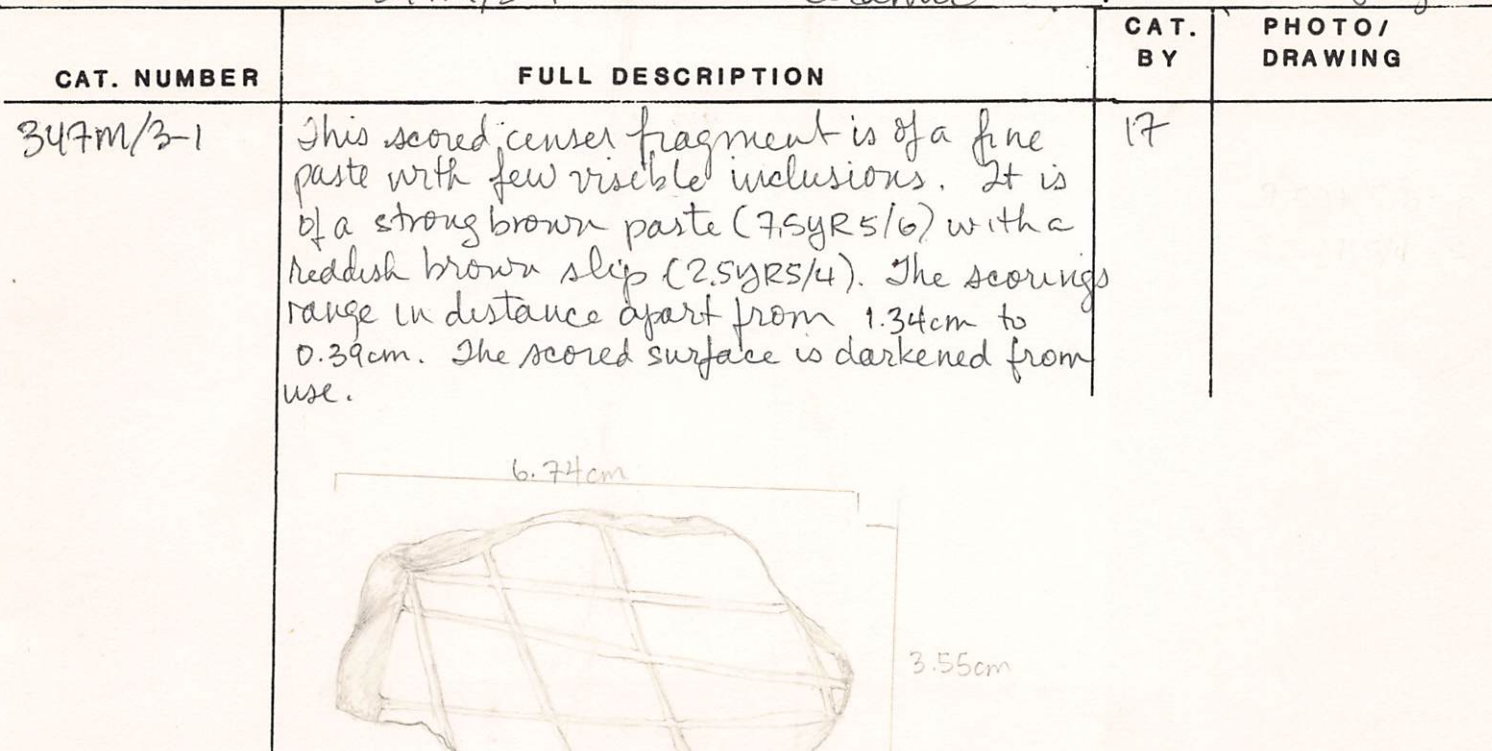 CAT. NUMBER
FULL DESCRIPTION
CAT.
BY
PHOTO/
DRAWING
347M/3-1
This scored censer fragment is of a fine
paste with few visible inclusions. It is
of a strong brown paste (7.5YR5/6) with a
reddish brown slip (2.5YR5/4). The scorings
range in distance apart from 1.34cm to
0.39cm. The scored surface is darkened from
use.
17
6.74cm
3.55cm